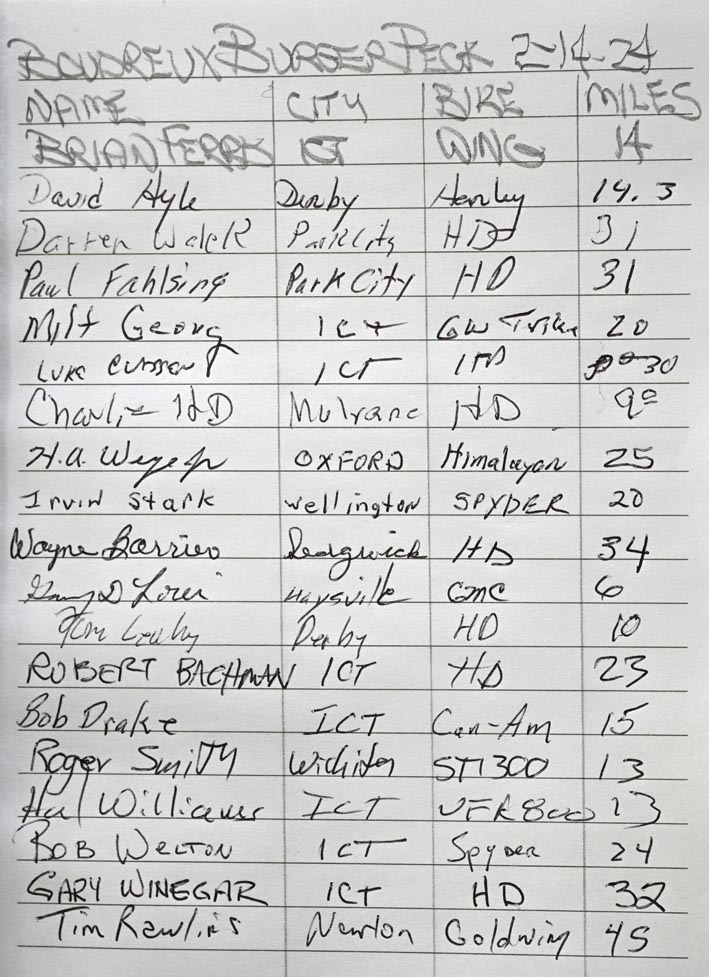 BOUDREUX BURGER PECK 2-14-24
NAME CITY BIKE MILES
BRIAN FERRIS ICT WING 14
David Hyle Derby Harley 14.3
Darren Walck Park City HD 31
Paul Fahlsing Park City HD 31
Milt Georg ICT GW Trike 20
LUKE ICT HD 30
Charlie HD Mulvane HD 90
H.A. OXFORD Himalayan 25
Irvin Stark Wellington SPYDER 20
Wayne Barrier Sedgwick HD 34
Haysville GMC 6
Tom Derby HD 10
ROBERT BACHMAN ICT HD 23
Bob Drake ICT Can-Am 15
Roger Smith Wichita ST1300 13
Hal Williams ICT VFR800 13
BOB WELTON ICT Spyder 24
GARY WINEGAR ICT HD 32
Tim Rawlins Newton Goldwing 45